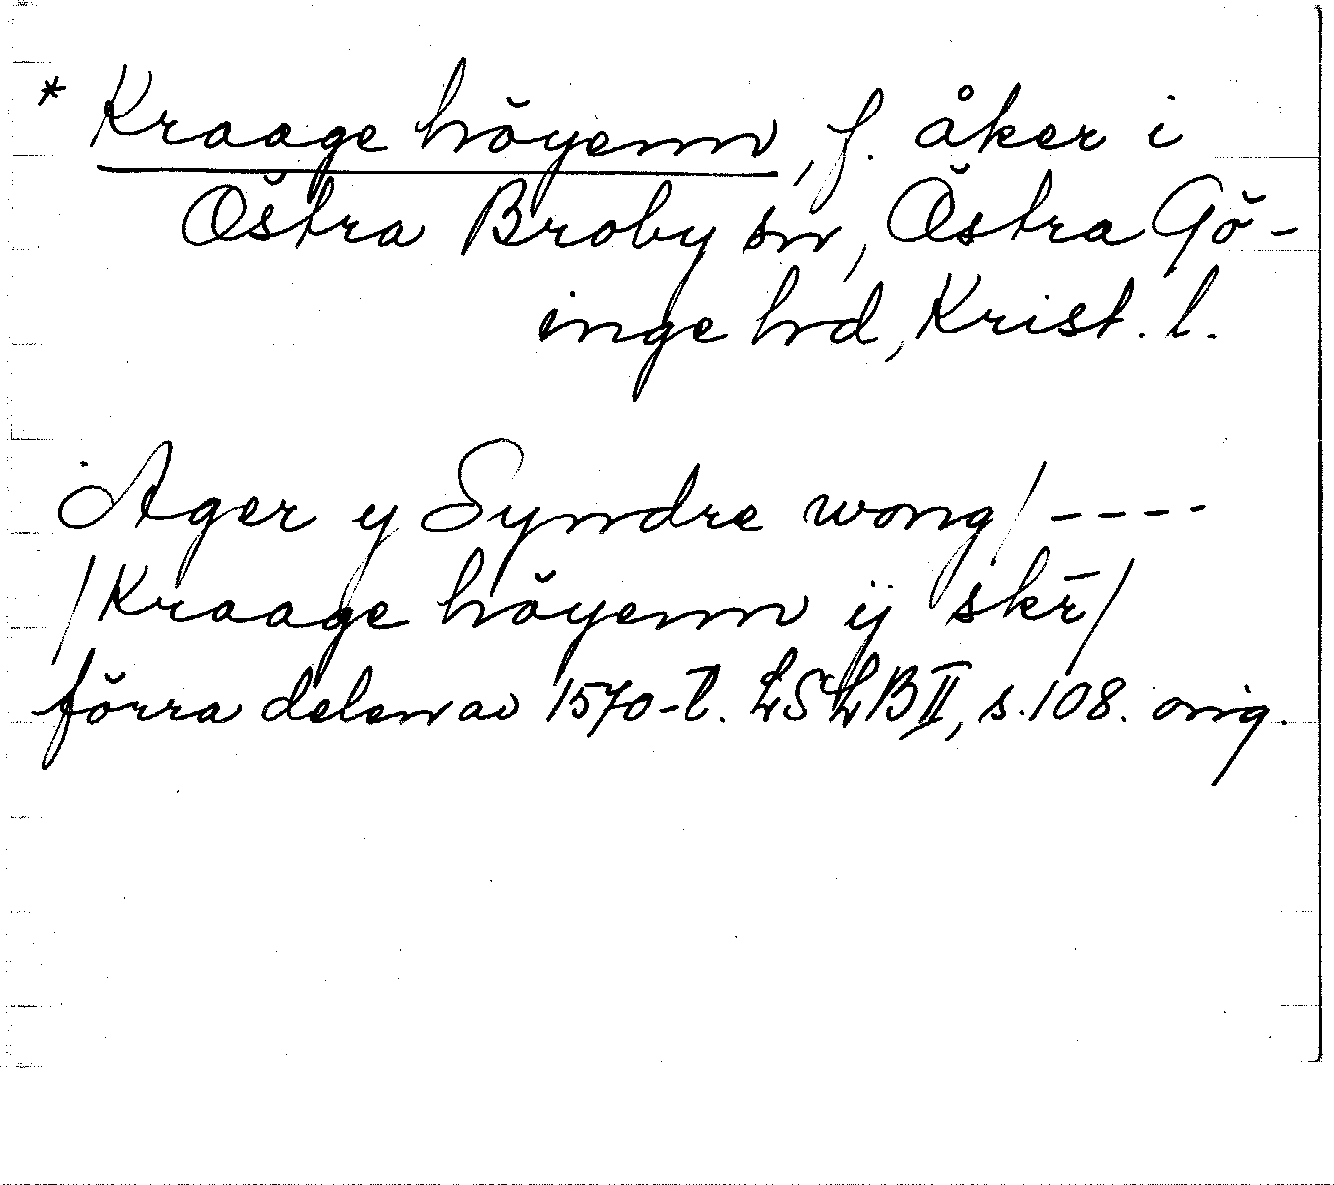 * Kraage höyenn, f. åker i
Östra Broby sn, Östra Gö-
inge hd, Krist. l.
Ager y Syndre wong / ----
/ Kraage höyenn ij skr̄ /
förra delen av 1570-t. LSLB II, s. 108. orig.